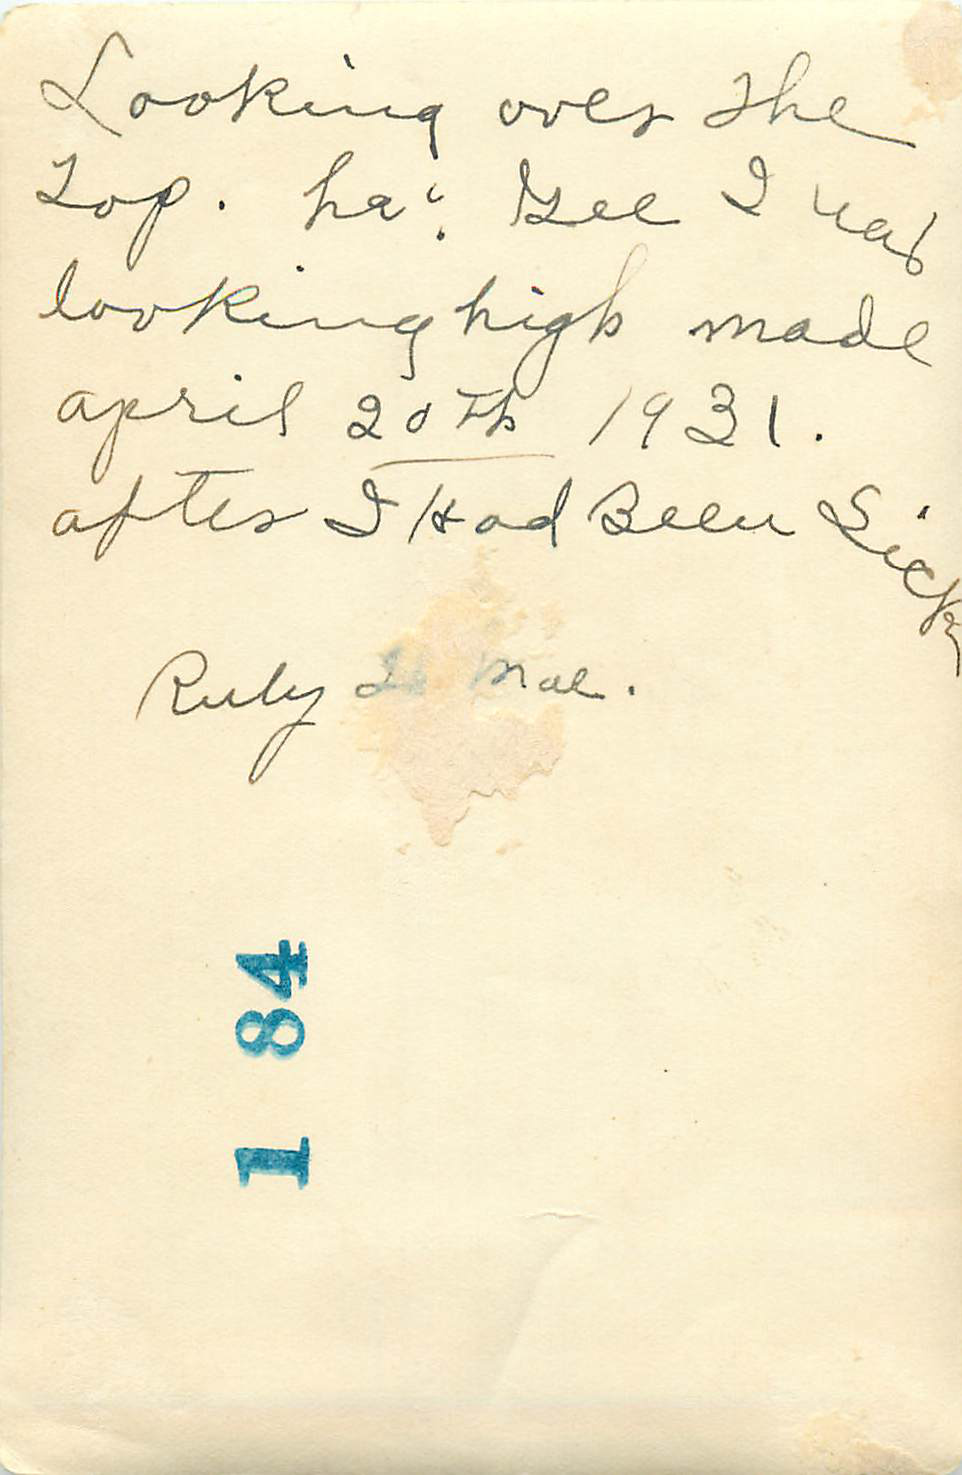 Looking over the
Top. ha! Gee I was
looking high made
april 20th 1931.
after I Had Been Sick
Ruby To Mae.
1 84